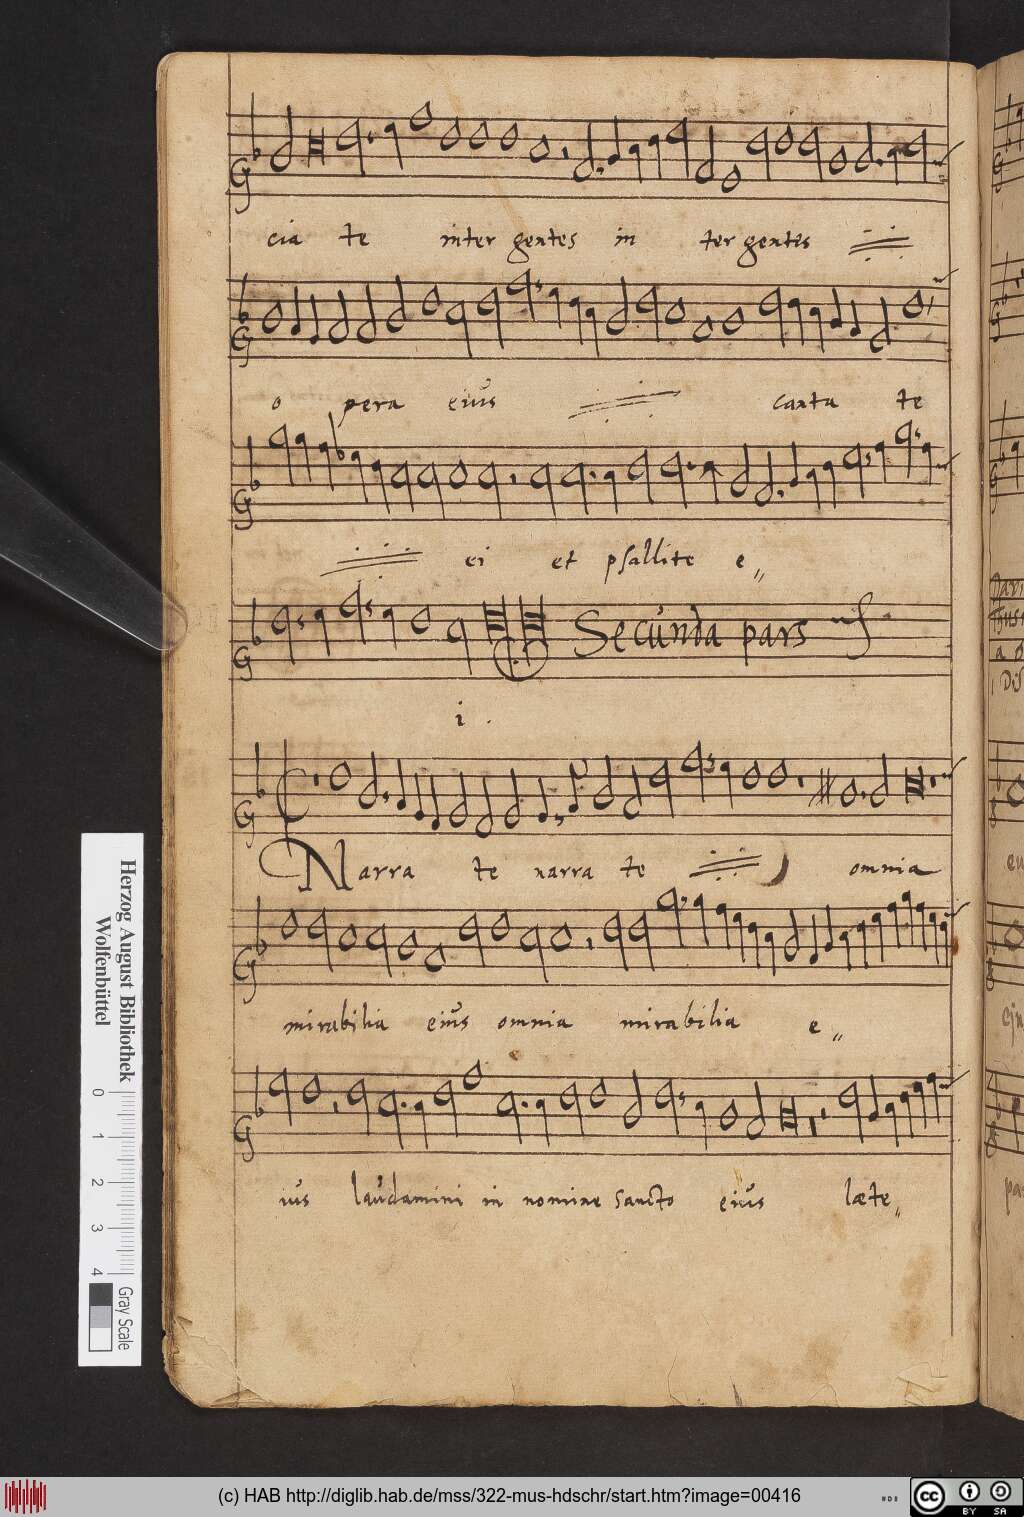 cia te inter gentes in ter gentes
o pera eius canta te
ei et psallite e„
Secunda pars
i.
Narra te narra te omnia
mirabilia eius omnia mirabilia e„
ius laudamini in nomine sancto eius læte„
Herzog August Bibliothek
Wolfenbüttel
0 1 2 3 4
Gray Scale
(c) HAB http://diglib.hab.de/mss/322-mus-hdschr/start.htm?image=00416
cc BY SA